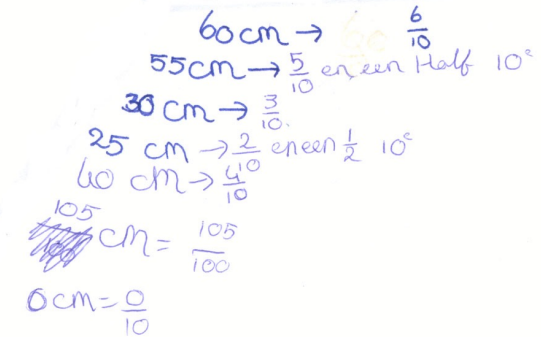 60cm → 6/10
55cm → 5/10 en een Half 10e
30 cm → 3/10.
25 cm → 2/10 en een 1/2 10e
40 cm → 4/10
105 cm = 105/100
0cm = 0/10